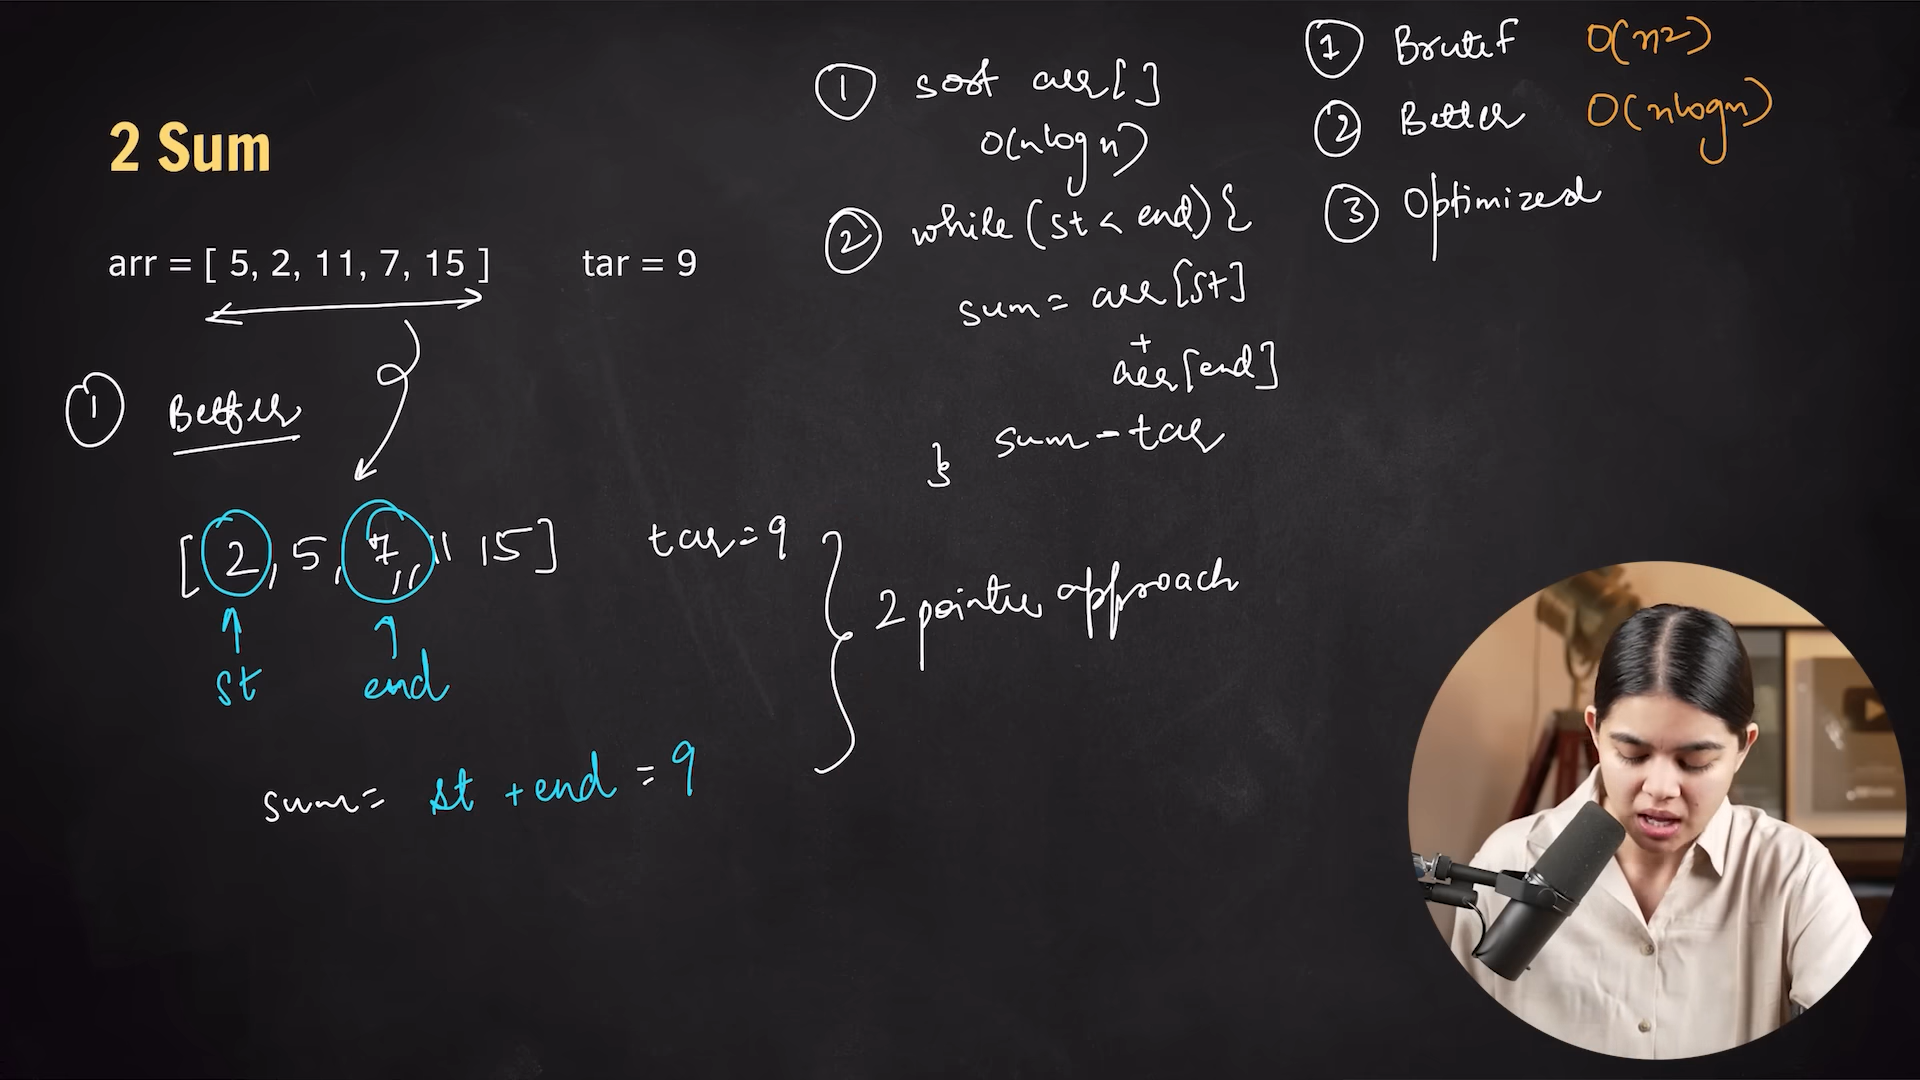 2 Sum
arr = [ 5, 2, 11, 7, 15 ] tar = 9
① Better
[ 2, 5, 7, 11, 15 ] tar = 9
st end
sum = st + end = 9
2 pointer approach
① sort arr[ ]
O(n log n)
② while (st < end) {
sum = arr[st]
+
arr[end]
sum - tar
}
① Brutef O(n2)
② Better O(n log n)
③ Optimized